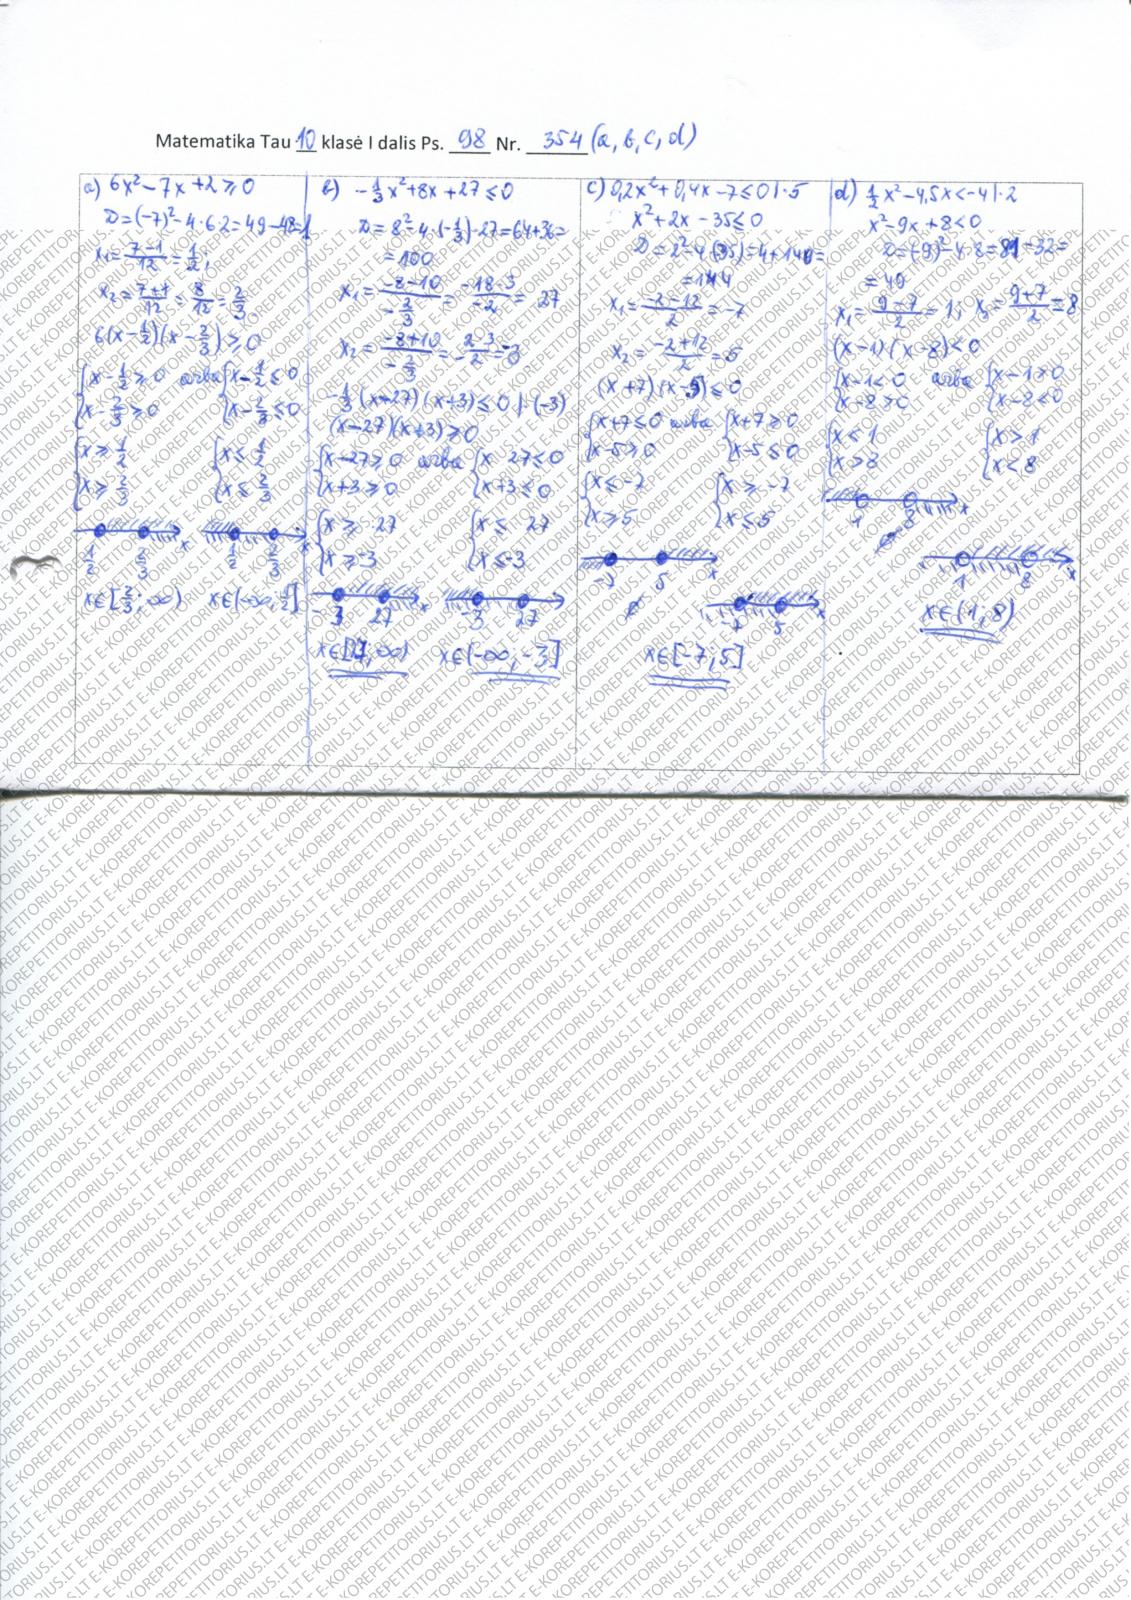 Matematika Tau 10 klasė I dalis Ps. 98 Nr. 354 (a, b, c, d)
a) 6x² - 7x + 2 ≥ 0
D = (-7)² - 4·6·2 = 49 - 48 = 1
x₁ = (7-1)/12 = 1/2;
x₂ = (7+1)/12 = 8/12 = 2/3
6(x - 1/2)(x - 2/3) ≥ 0
{x - 1/2 ≥ 0 arba {x - 1/2 ≤ 0
{x - 2/3 ≥ 0 {x - 2/3 ≤ 0
{x ≥ 1/2 {x ≤ 1/2
{x ≥ 2/3 {x ≤ 2/3
1/2 2/3 x 1/2 2/3 x
x∈[2/3; ∞) x∈(-∞; 1/2]
b) -1/3 x² + 8x + 27 ≤ 0
D = 8² - 4·(-1/3)·27 = 64 + 36 =
= 100
x₁ = (-8-10)/(-2/3) = (-18·3)/(-2) = 27
x₂ = (-8+10)/(-2/3) = -(2·3)/2 = -3
-1/3 (x-27)(x+3) ≤ 0 |·(-3)
(x-27)(x+3) ≥ 0
{x-27 ≥ 0 arba {x-27 ≤ 0
{x+3 ≥ 0 {x+3 ≤ 0
{x ≥ 27 {x ≤ 27
{x ≥ -3 {x ≤ -3
-3 27 x -3 27
x∈[27; ∞) x∈(-∞; -3]
c) 0,2x² + 0,4x - 7 ≤ 0 |·5
x² + 2x - 35 ≤ 0
D = 2² - 4·(-35) = 4 + 140 =
= 144
x₁ = (-2-12)/2 = -7
x₂ = (-2+12)/2 = 5
(x+7)(x-5) ≤ 0
{x+7 ≤ 0 arba {x+7 ≥ 0
{x-5 ≥ 0 {x-5 ≤ 0
{x ≤ -7 {x ≥ -7
{x ≥ 5 {x ≤ 5
-7 5 x
∅ -7 5 x
x∈[-7; 5]
d) 1/2 x² - 4,5x < -4 |·2
x² - 9x + 8 < 0
D = (-9)² - 4·8 = 81 - 32 =
= 49
x₁ = (9-7)/2 = 1; x₂ = (9+7)/2 = 8
(x-1)(x-8) < 0
{x-1 < 0 arba {x-1 > 0
{x-8 > 0 {x-8 < 0
{x < 1 {x > 1
{x > 8 {x < 8
1 8 x
∅
1 8 x
x∈(1; 8)
E-KOREPETITORIUS.LT